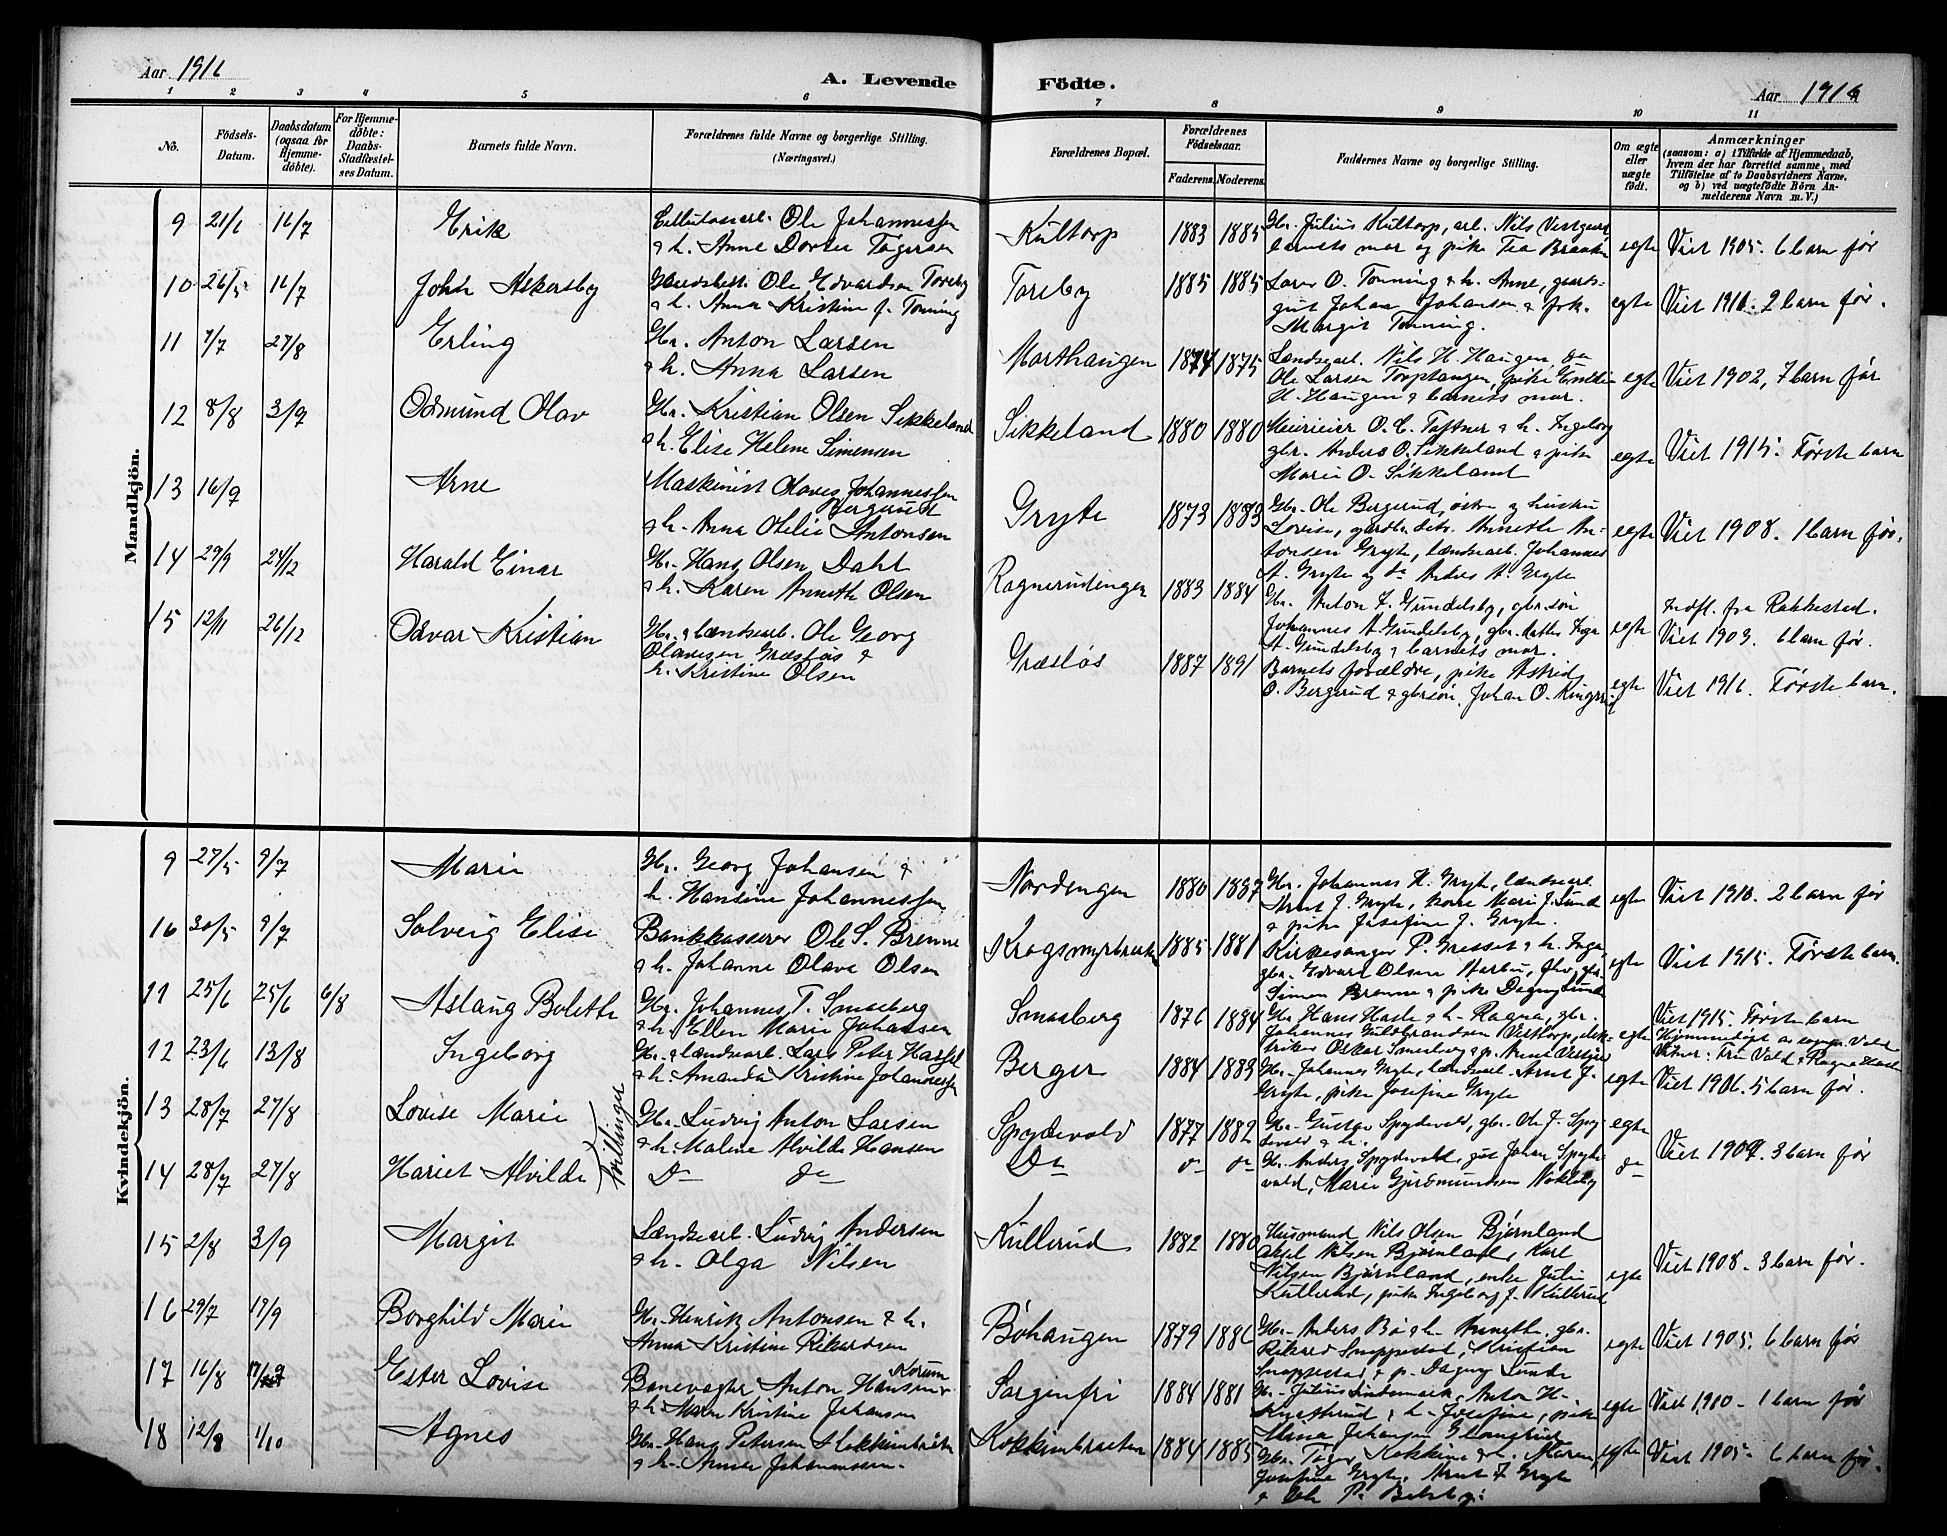 Aar 1916
A. Levende Födte.
Aar 1916
1 2 3 4 5 6 7 8 9 10 11
No.
Födsels-Datum.
Daabsdatum (ogsaa for Hjemme-döbte).
For Hjemme-döbte: Daabs-Stadfæstel-ses Datum.
Barnets fulde Navn.
Forældrenes fulde Navne og borgerlige Stilling.
(Næringsvei.)
Forældrenes Bopæl.
Forældrenes Födselsaar.
Faderens. Moderens.
Faddernes Navne og borgerlige Stilling.
Om ægte eller uægte födt.
Anmærkninger
(saasom: a) i Tilfælde af Hjemmedaab,
hvem der har forrettet samme, med
Tilföielse af to Daabsvidners Navne,
og b) ved uægtefödte Börn An-
melderens Navn m. V.)
Mandkjön.
9 21/6 16/7 Erik
Ole Johannessen
& h. Anne Dortea Tøgersen
Kultorp 1883 1885
Gbr. Julius Kultorp, arb. Nils
barnets mor og pike Tea
egte Viet 1905. 6 barn før
10 26/5 16/7 John Askersby
Ole Edvardsen Toreby
& h. Anna Kristine f. Tonning
Toreby 1885 1885
Lærer O. Tonning & h. Anne, gaards-
gut Johan Johansen & frk.
Margit Tonning.
egte Viet 1916. 2 barn før.
11 7/7 27/8 Erling
Gbr. Anton Larsen
& h. Anna Larsen
Morthaugen 1874 1875
Landsearb. Nils H. Haugen, do
Ole Larsen Torptangen, pike Emilie
H. Haugen & barnets mor.
egte Viet 1902, 7 barn før
12 8/8 3/9 Odmund Olav
Gbr. Kristian Olsen Sikkeland
& h. Elise Helene Simensen
Sikkeland 1880 1880
Meierieier O. C. Toftner & h. Ingeborg
gbr. Anders O. Sikkeland & pike
Marie O. Sikkeland
egte Viet 1915. Første barn
13 16/9 Arne
Maskinist Olaves Johannessen
Bergerud
& h. Anna Otilie Antonsen
Gryte 1873 1883
Gbr. Ole Bergerud, østre og hustru
Lovise, gaardbr. datr. Annethe An-
tonsen Gryte, landsearb. Johannes
A. Gryte og do Andres A. Gryte
egte Viet 1908. 1 barn før.
14 29/9 24/12 Harald Einar
Gbr. Hans Olsen Dahl
& h. Karen Annethe Olsen
Ragnerudengen 1883 1884
Gbr. Anton J. Gundelsby, gbr.søn
Johannes A. Gundelsby, gbr. datter Inga
A. Gundelsby & barnets mor.
egte Indfl. fra Rakkestad.
Viet 1903. 6 barn før.
15 12/11 26/12 Odvar Kristian
Gbr. & landsearb. Ole Georg
Olavesen Græsløs &
h. Kristine Olsen
Græsløs 1887 1891
Barnets forældre, pike Astrid
O. Bergerud & gbr.søn. Johan O. Kingsrud
egte Viet 1916. Første barn.
Kvindekjön.
9 27/5 9/7 Marie
Gbr. Georg Johansen &
h. Hansine Johannessen
Nordengen 1880 1887
Gbr. Johannes H. Gryte, landsearb.
Arnt J. Gryte, kone Mari J. Lund
& pike Josefine J. Gryte.
egte Viet 1910. 2 barn før
10 30/5 9/7 Solveig Elise
Bankkasserer Ole S. Brenne
& h. Johanne Olava Olsen
Krogsmyrbraaten 1885 1881
Kirkesanger P. Gresset & h. Inga,
gbr. Edvard Olsen
Simen Brenne & pike Dagny Lunde
egte Viet 1915. Første barn.
11 25/6 25/6 6/8 Aslaug Bolette
Gbr. Johannes T. Smaaberg
& h. Ellen Marie Johansen
Smaaberg 1876 1884
Gbr. Hans Hasle & h. Ragna, gbr.
Johannes Guldbrandsen
Oskar Smaaberg & p. Anne
egte Viet 1915. Første barn
Hjemmedøpt av sogn. Vold
Vitner: Fru Vold & Ragna Hasle
12 23/6 13/8 Ingeborg
Gbr. & landsearb. Lars Peter Hassel
& h. Amanda Kristine Johannessen
Berger 1884 1883
Gbr. Johannes Gryte, landsearb. Arnt J.
Gryte, pike Josefine Gryte
egte Viet 1906. 5 barn før.
13 28/7 27/8 Lovise Marie
Tvillinger
Gbr. Ludvig Anton Larsen
& h. Maline Alvilde Hansen
Spydevold 1877 1882
Gbr. Gustav Spydevold, gbr. Ole J. Spy-
devold & h.
egte
14 28/7 27/8 Hariet Alvilde
Do do
Do do do
Gbr. Anders Spydevold, gut Johan Spyde-
vold, Marie Gjermundsen Nokleby
do Viet 1904. 3 barn før
15 2/8 3/9 Margit
Landsearb. Ludvig Andersen
& h. Olga Nilsen
Kullerud 1882 1880
Husmand Nils Olsen Bjørnland
Aksel Nilsen Bjørnland, Karl
Nilsen Bjørnland, enke Julie
Kullerud, pike Ingeborg J. Kullerud
egte Viet 1908. 3 barn før.
16 29/7 17/9 Borghild Marie
Gbr. Henrik Antonsen & h.
Anna Kristine Rikardsen
Bøhaugen 1879 1886
Gbr. Anders Bø & h. Annethe, gbr.
Rikard Snoppestad, Kristian
Snoppestad & p. Dagny Lunde
egte Viet 1905. 6 barn før
17 16/8 17/9 Ester Lovise
Korum
Banevogter Anton Hansen
& h. Maren Kristine Johansen
Sorgenfri 1884 1881
Gbr. Julius Lindemark, Anton H.
& h. Josefine, pike
Mina Johansen
egte Viet 1910 - 1 barn før
18 12/8 1/10 Agnes
Gbr. Hans Petersen Kokkimbraaten
& h. Anna Johannessen.
Kokkimbraaten 1884 1885
Gbr. Tøger Kokkim & h. Maren,
Josefine Gryte, Arnt J. Gryte
& Ole P.
egte Viet 1905 - 6 barn før.